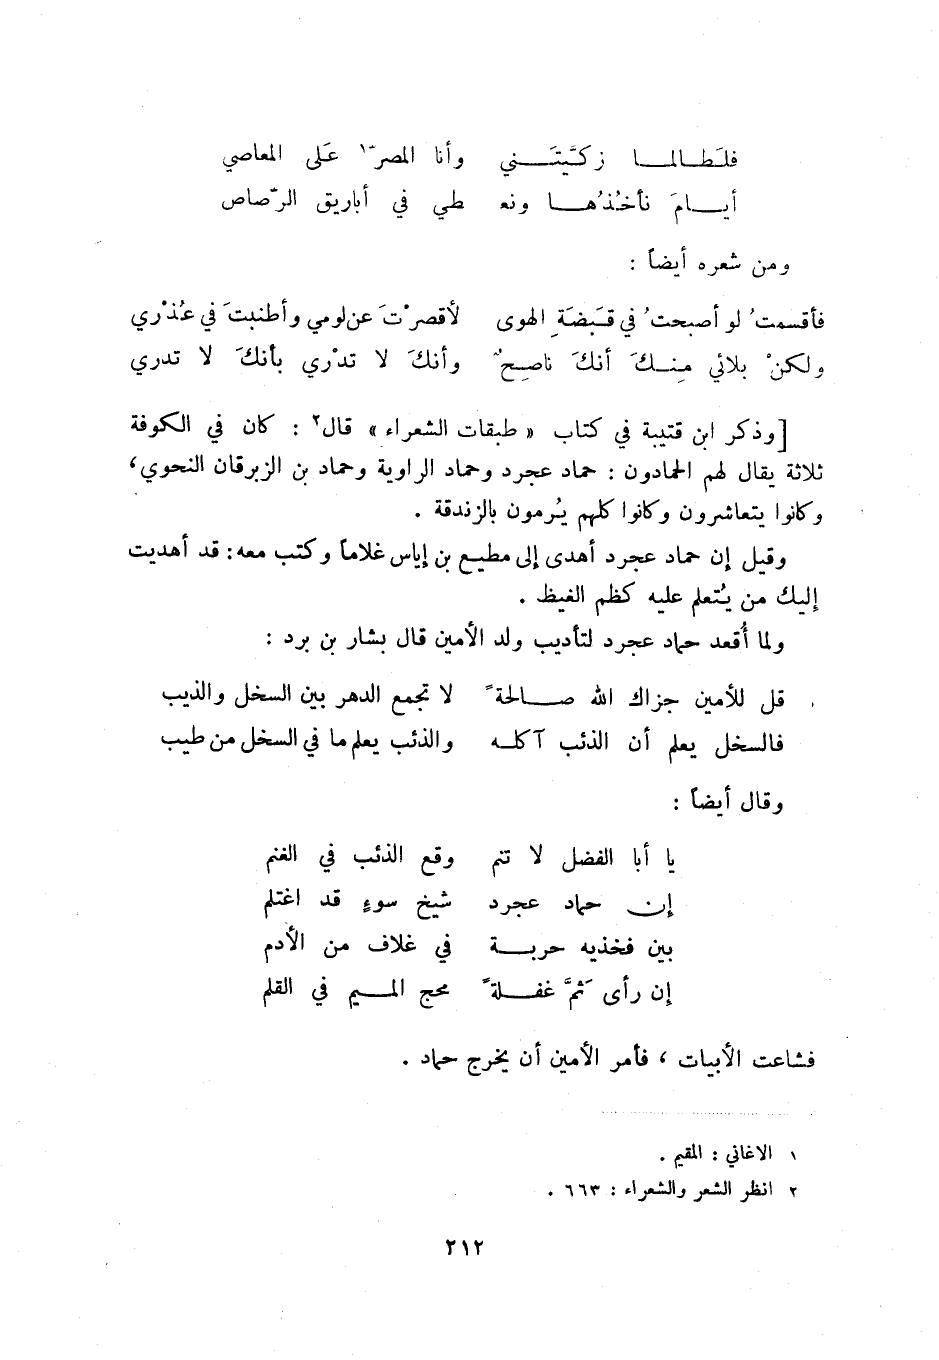 فلَطالما زكَّيتَني وأنا المصرّ١ عَلى المعاصي
أيامَ نأخُذُها ونعـ ـطي في أباريق الرّصاص
ومن شعره أيضاً :
فأقسمتُ لو أصبحتُ في قَبضَةِ الهوى لأقصرْتَ عن لومي وأطنبتَ في عُذْري
ولكنْ بلائي مِنكَ أنكَ ناصِحٌ وأنكَ لا تدْري بأنكَ لا تدري
[وذكر ابن قتيبة في كتاب « طبقات الشعراء » قال٢ : كان في الكوفة
ثلاثة يقال لهم الحمادون : حماد عجرد وحماد الراوية وحماد بن الزبرقان النحوي،
وكانوا يتعاشرون وكانوا كلهم يُرمون بالزندقة .
وقيل إن حماد عجرد أهدى إلى مطيع بن إياس غلاماً وكتب معه : قد أهديت
إليك من يُتعلم عليه كظم الغيظ .
ولما أُقعد حماد عجرد لتأديب ولد الأمين قال بشار بن برد :
قل للأمين جزاك الله صالحةً لا تجمع الدهر بين السخل والذيب
فالسخل يعلم أن الذئب آكله والذئب يعلم ما في السخل من طيب
وقال أيضاً :
يا أبا الفضل لا تنم وقع الذئب في الغنم
إن حماد عجرد شيخ سوءٍ قد اغتلم
بين فخذيه حربة في غلاف من الأدم
إن رأى ثَمَّ غفلةً مجمج الميم في القلم
فشاعت الأبيات ، فأمر الأمين أن يخرج حماد .
١ الاغاني : المقيم .
٢ انظر الشعر والشعراء : ٦٦٣ .
٢١٢